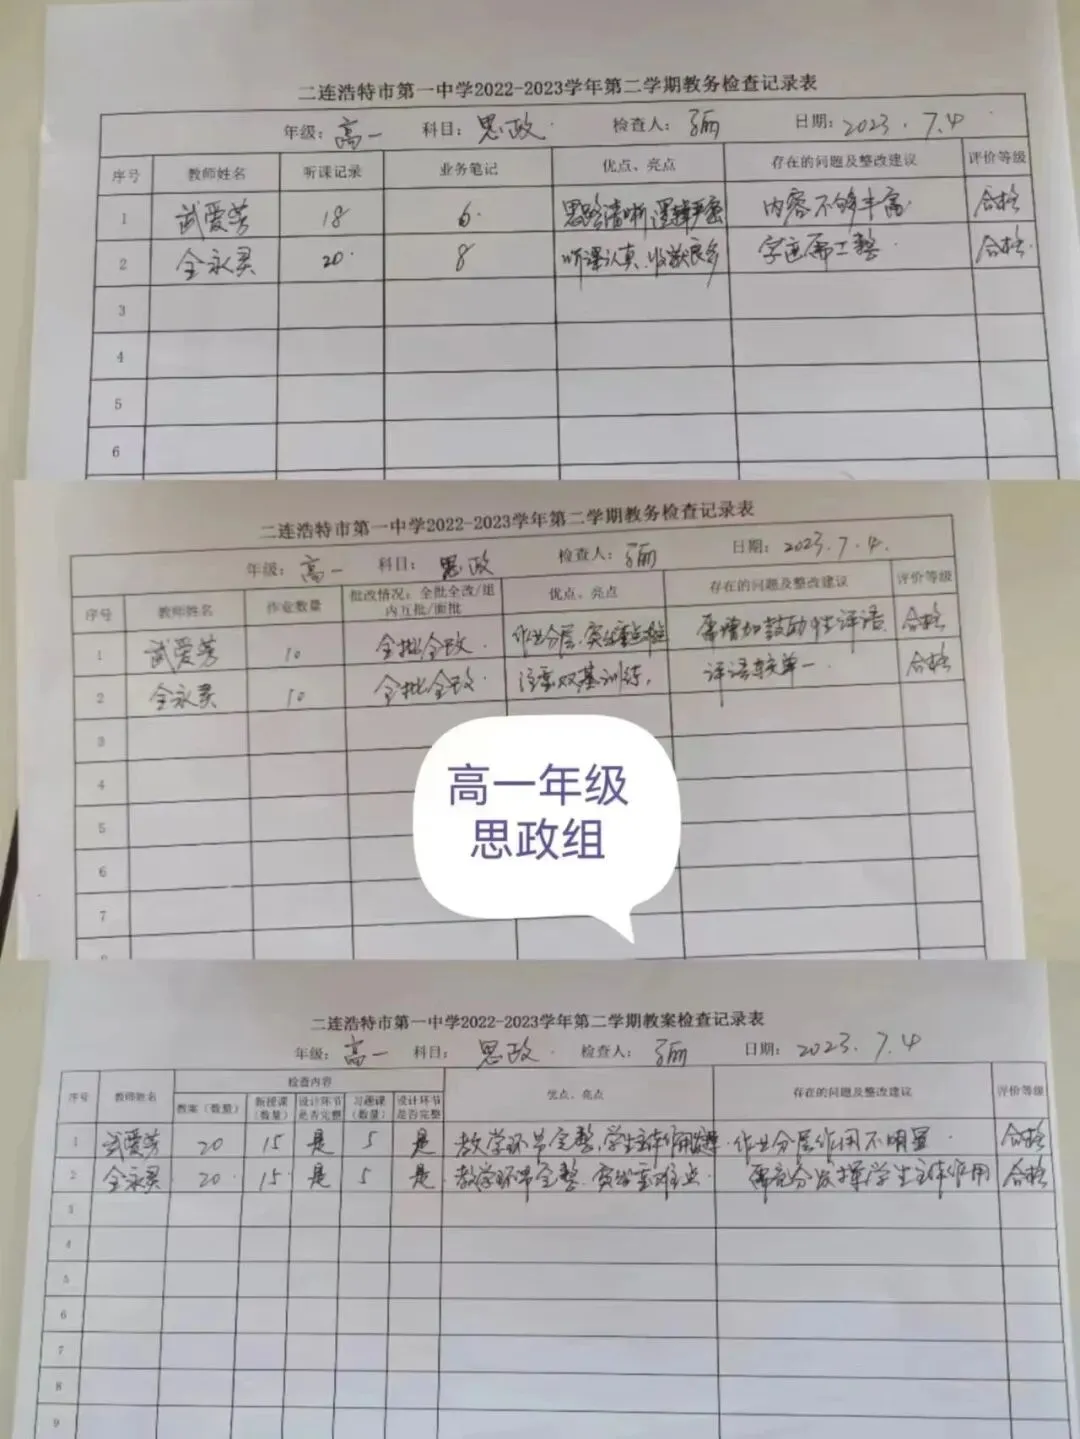 二连浩特市第一中学2022-2023学年第二学期教务检查记录表
年级：高一 科目：思政 检查人： 日期：2023.7.4
序号 教师姓名 听课记录 业务笔记 优点、亮点 存在的问题及整改建议 评价等级
1 武爱芳 18 6 思路清晰 逻辑严密 内容不够丰富 合格
2 全永灵 20 8 听课认真、收获良多 字迹需工整 合格
3
4
5
6
二连浩特市第一中学2022-2023学年第二学期教务检查记录表
年级：高一 科目：思政 检查人： 日期：2023.7.4.
序号 教师姓名 作业数量 批改情况：全批全改/组内互批/面批 优点、亮点 存在的问题及整改建议 评价等级
1 武爱芳 10 全批全改 作业分层、突出重点 需增加鼓励性评语 合格
2 全永灵 10 全批全改 注重双基训练 评语较单一 合格
3
4
5
6
7
高一年级
思政组
二连浩特市第一中学2022-2023学年第二学期教案检查记录表
年级：高一 科目：思政 检查人： 日期：2023.7.4
序号 教师姓名 检查内容 优点、亮点 存在的问题及整改建议 评价等级
教案（数量） 新授课（数量） 设计环节是否完整 习题课（数量） 设计环节是否完整
1 武爱芳 20 15 是 5 是 教学环节完整、学生主体作用 作业分层作用不明显 合格
2 全永灵 20 15 是 5 是 教学环节完整、突出重难点 需充分发挥学生主体作用 合格
3
4
5
6
7
8
9